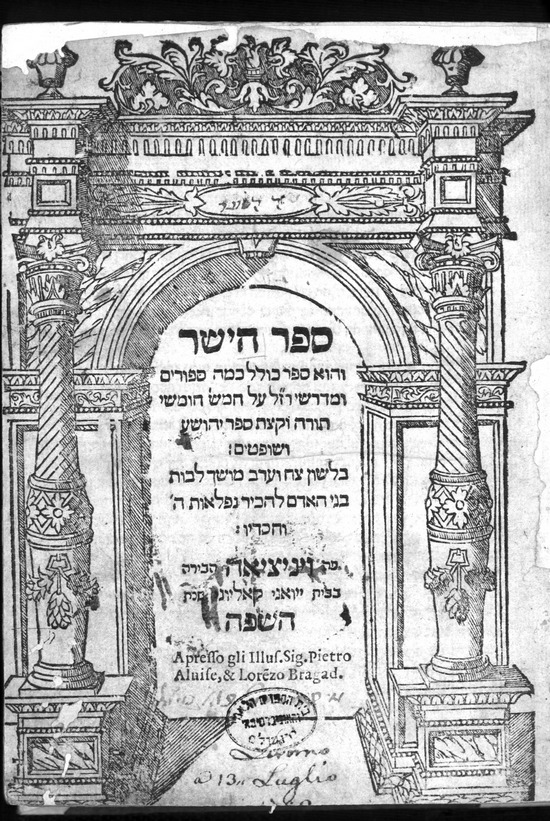 ספר הישר
והוא ספר כולל כמה ספורים
ומדרשי רז״ל על חמש׳ חומשי
תורה וקצת ספר יהושע
ושופטים:
בלשון צח וערב מושך לבות
בני האדם להכיר נפלאות ה׳
וחסדיו:
פה ויניציאה הבירה
בבית יואני קאליוני שנת
השפה
Apresso gli Illus. Sig. Pietro
Aluise, & Lorēzo Bragad.
Livorno
a 13„ Luglio